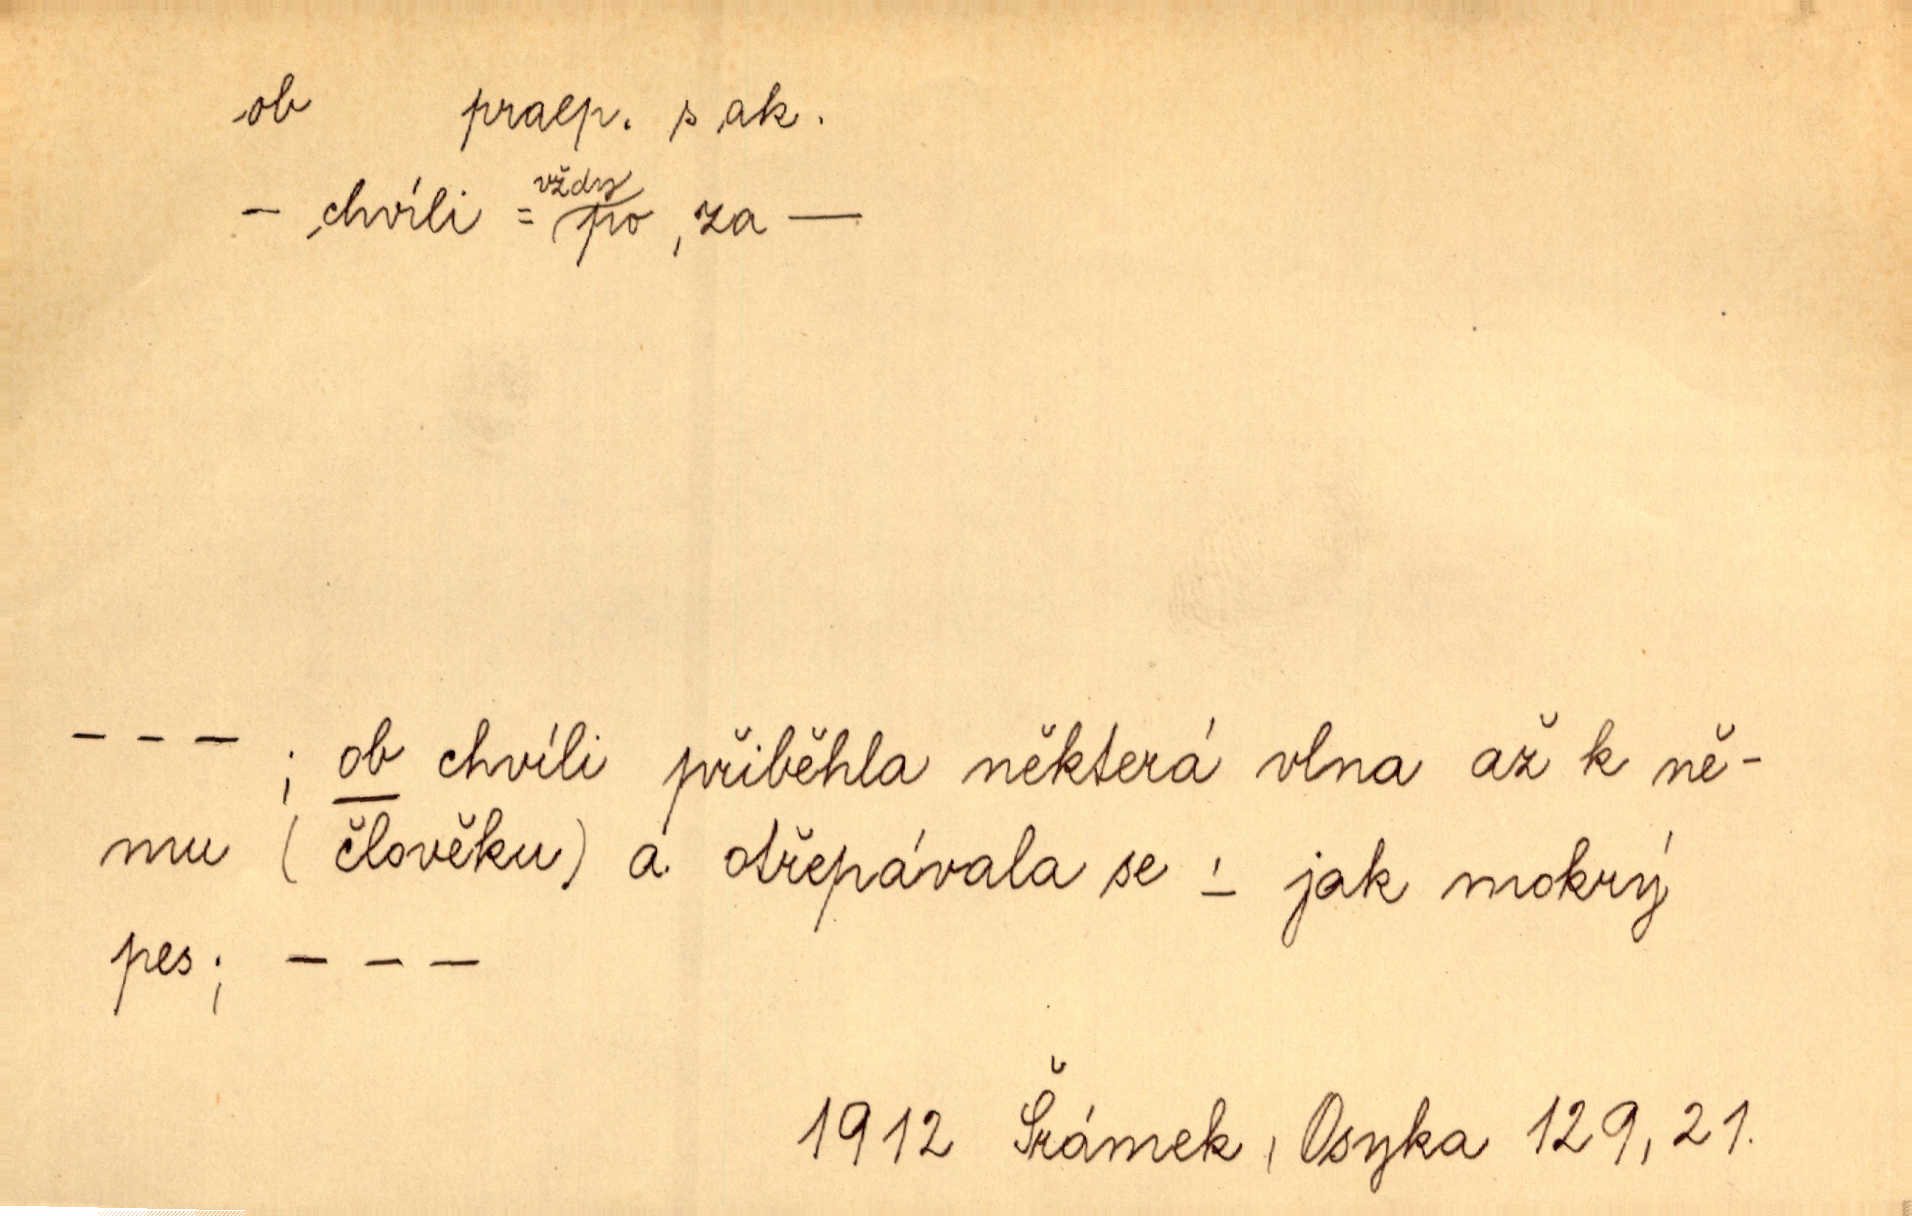 ob praep. s ak.
vždy
- chvíli = po, za —
- - - ; ob chvíli přiběhla některá vlna až k ně-
mu (člověku) a otřepávala se ! jak mokrý
pes; - - -
1912 Šrámek, Osyka 129, 21.